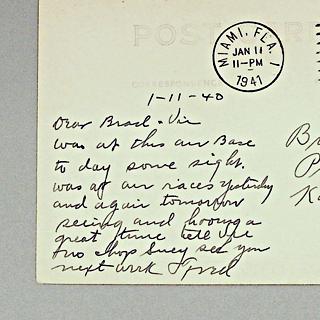 POST
CORRESPONDENCE
MIAMI, FLA. 1
JAN 11
11-PM
1941
1-11-40
Dear Brad & Vin
was at this air Base
to day some sight.
was at air races yesterday
and again tomorrow
seeing and having a
great time tell
two chop suey see you
next week Fred